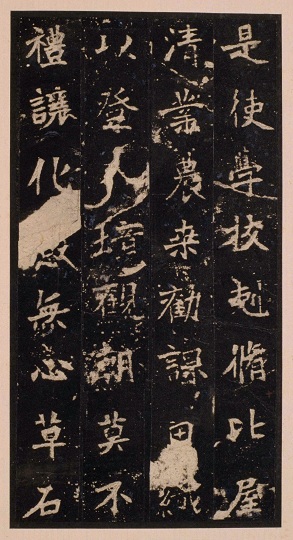 是使學校剋脩比屋
清業農桑勸課田織
以登入境觀朝莫不
禮讓化感無心草石